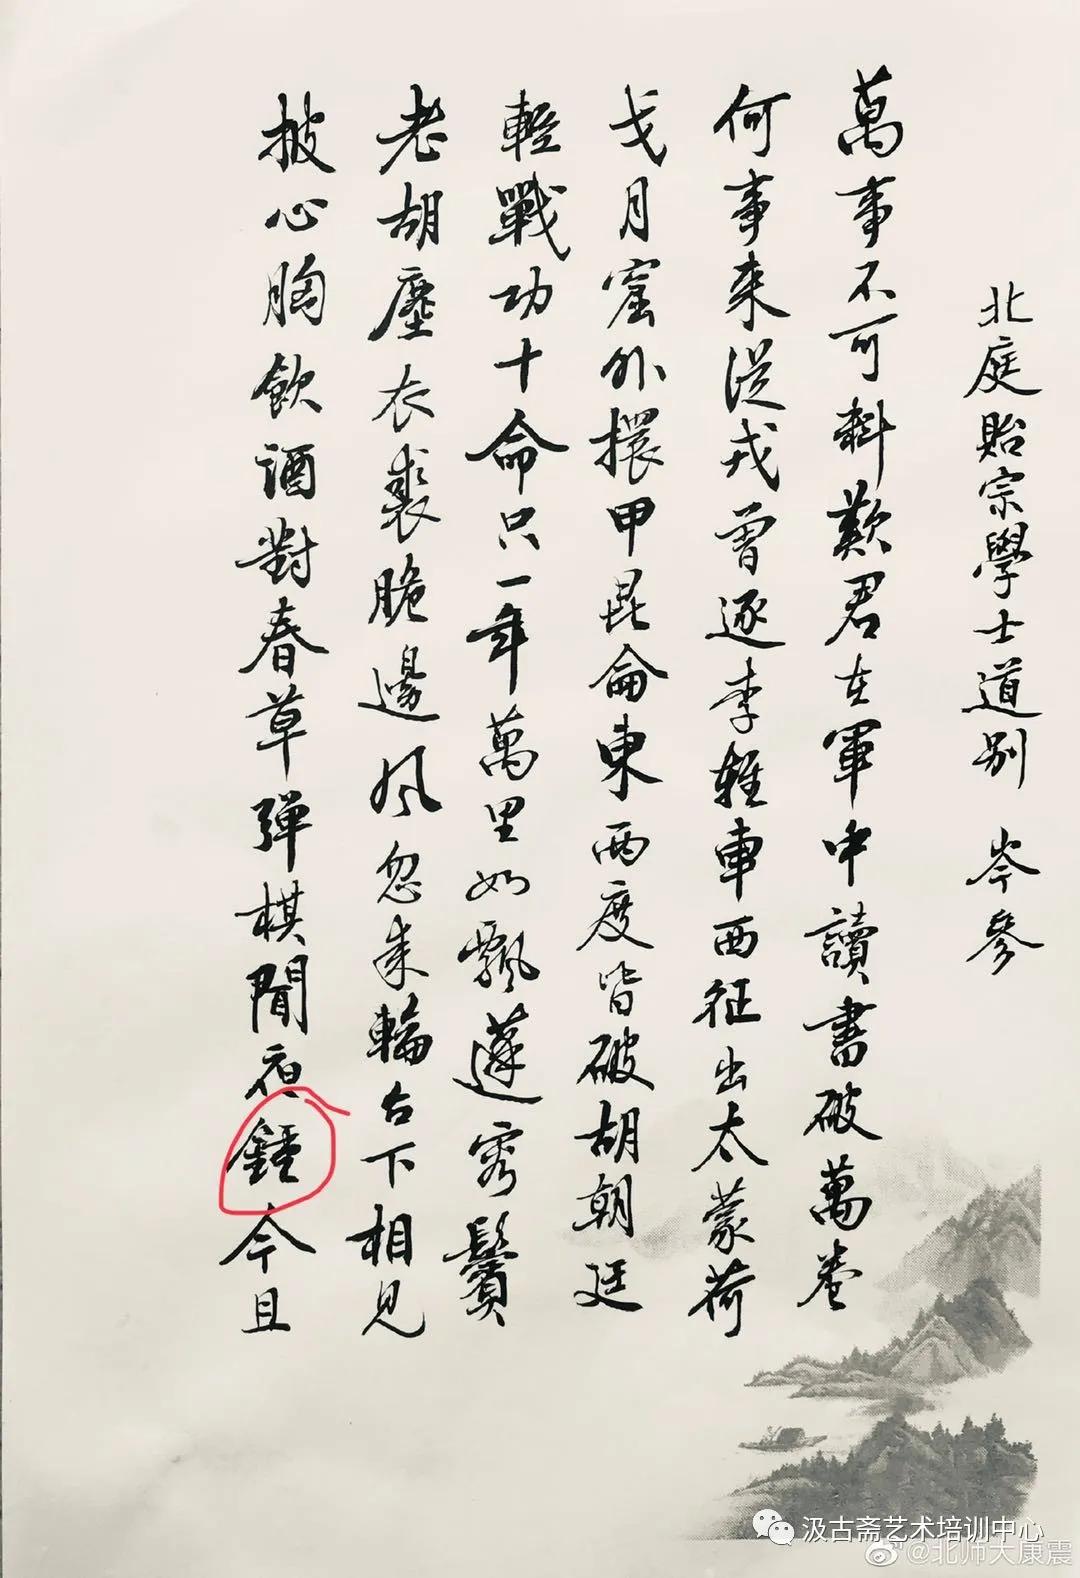 北庭貽宗學士道别 岑參
萬事不可料歎君在軍中讀書破萬卷
何事来從戎曾逐李輕車西征出太蒙荷
戈月窟外擐甲昆侖東兩度皆破胡朝廷
輕戰功十命只一年萬里如飄蓬容鬢
老胡塵衣裘脆邊風忽来輪台下相見
披心胸飲酒對春草彈棋聞夜鍾今且
汲古斋艺术培训中心
@北师大康震